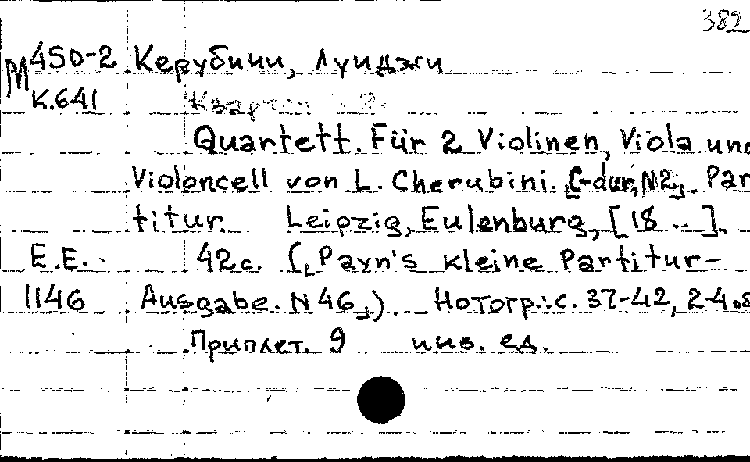 382
М450-2 Керубини, Луиджи
К.641
Quartett. Für 2 Violinen, Viola und
Violoncell von L. Cherubini. [C-dur, N2„. Par
titur. Leipzig, Eulenburg, [18 ..].
E.E. 42c. („Payn's kleine Partitur-
1146 Ausgabe. N 46„) Нотогр.: с. 37-42, 2-4.
Приплет. 9 инв. ед.